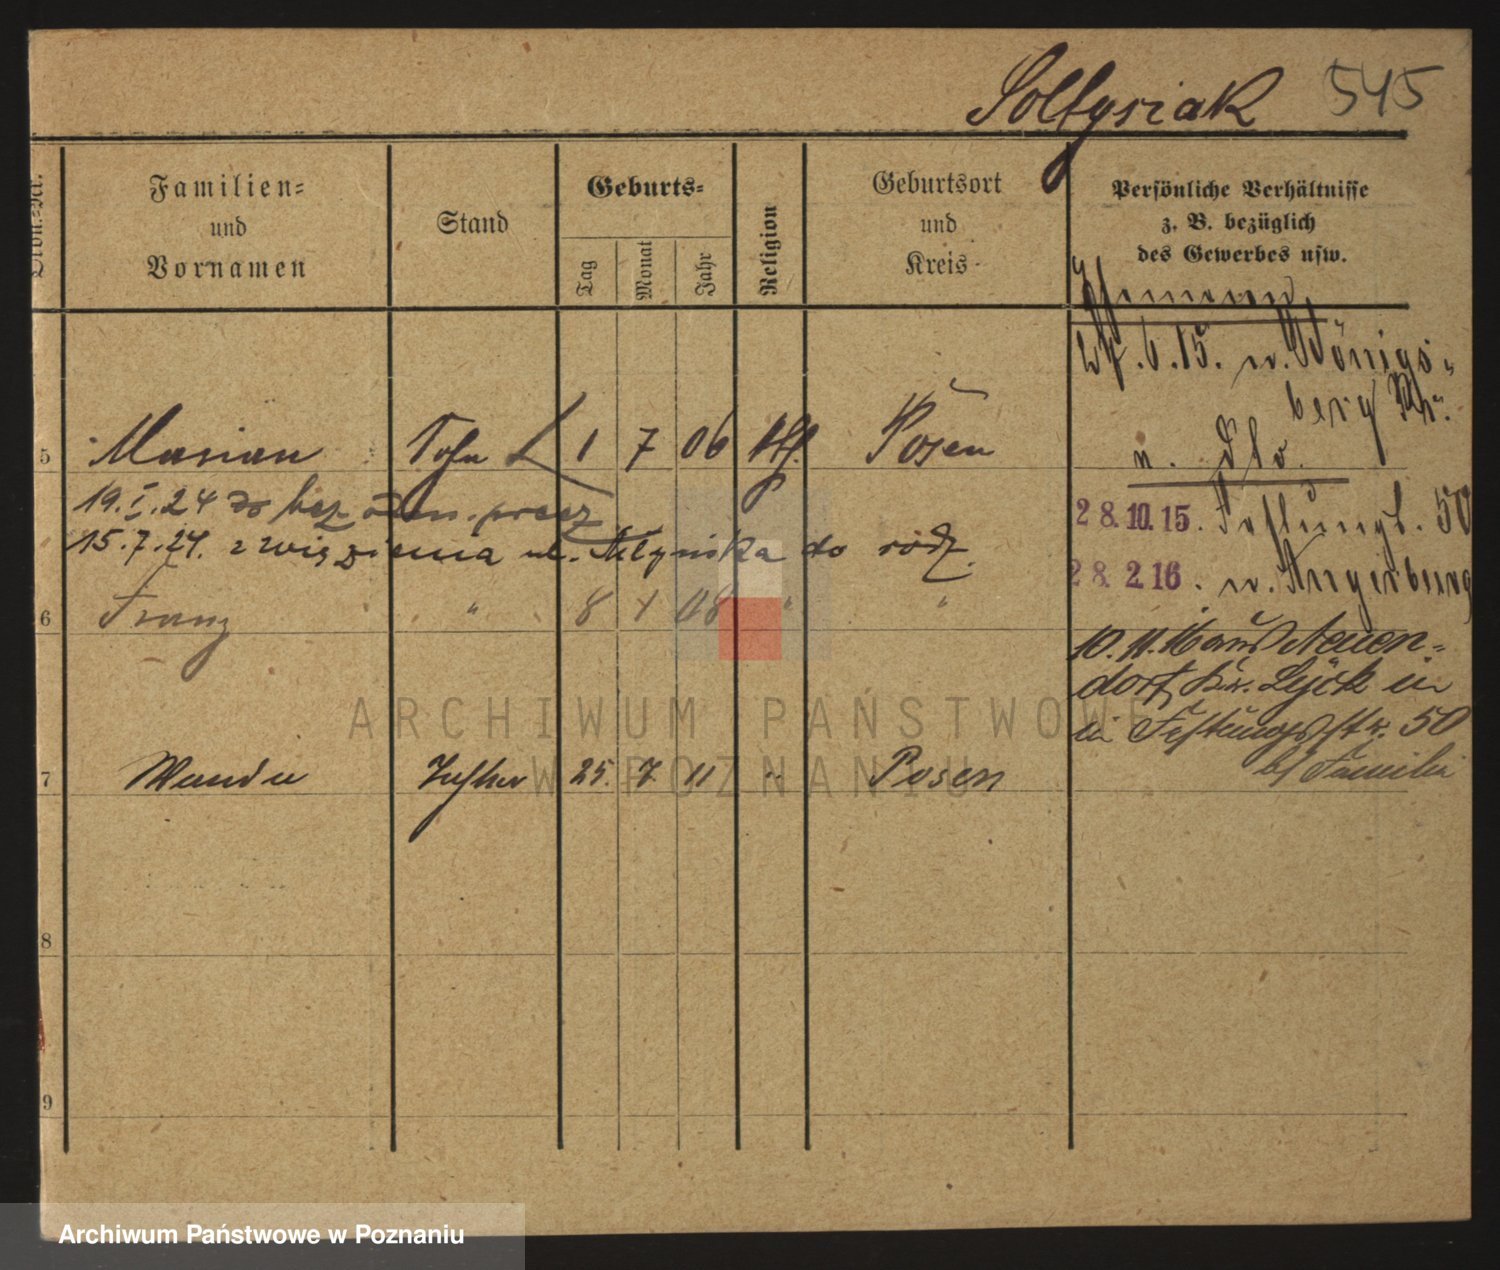 Soltysiak 545
Familien=
und
Vornamen
Stand
Geburts=
Tag
Monat
Jahr
Religion
Geburtsort
und
Kreis
Persönliche Verhältnisse
z. B. bezüglich
des Gewerbes usw.
.6.15. n. Königs=
berg Pr.
n. Dto.
5 Marian Sohn 1 7 06 kth. Posen
19.I.24 do
28.10.15. Festungs. 50
15.7.24. z więzienia ul. Młyńska do rodz.
28.2.16. n. Angerburg
6 Franz " 8 1 08 " "
10.11.16 aus Neuen=
dorf Kr. Lyck in
in Festungsstr. 50
b/ Familie
7 Wanda Tochter 25. 7. 11 " Posen
8
9
ARCHIWUM PAŃSTWOWE
W POZNANIU
Archiwum Państwowe w Poznaniu